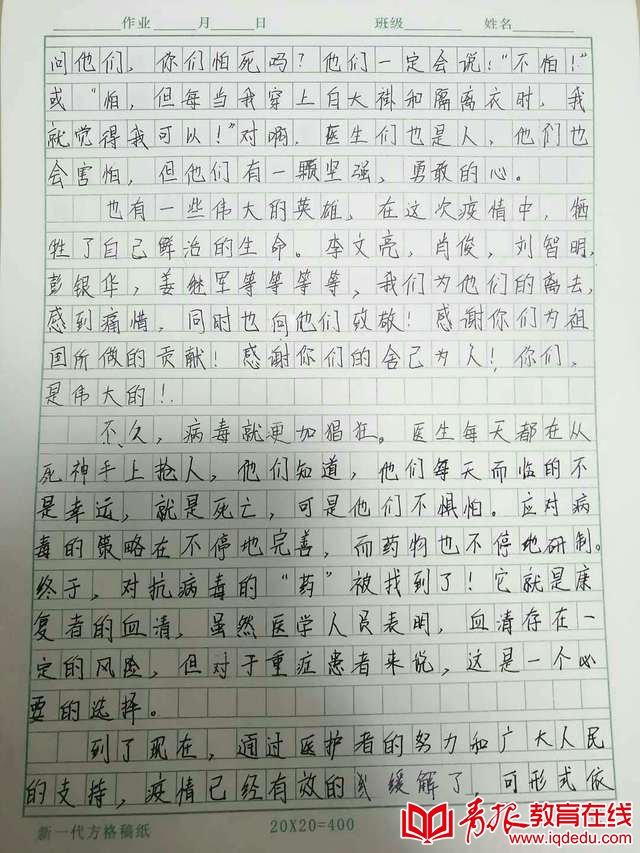 作业 月 日 班级 姓名
问他们，你们怕死吗？他们一定会说："不怕！"
或"怕，但每当我穿上白大褂和隔离衣时，我
就觉得我可以！"对啊，医生们也是人，他们也
会害怕，但他们有一颗坚强，勇敢的心。
也有一些伟大的英雄，在这次疫情中，牺
牲了自己鲜治的生命。李文亮，肖俊，刘智明，
彭银华，姜继军等等等等，我们为他们的离去，
感到痛惜，同时也向他们致敬！感谢你们为祖
国所做的贡献！感谢你们的舍己为人！你们，
是伟大的！
不久，病毒就更加猖狂。医生每天都在从
死神手上抢人，他们知道，他们每天而临的不
是幸运，就是死亡，可是他们不惧怕。应对病
毒的策略在不停地完善，而药物也不停地研制。
终于，对抗病毒的"药"被找到了！它就是康
复者的血清，虽然医学人员表明，血清存在一
定的风险，但对于重症患者来说，这是一个必
要的选择。
到了现在，通过医护者的努力和广大人民
的支持，疫情已经有效的 缓解了，可形式依
新一代方格稿纸 20X20=400
青报教育在线
www.iqdedu.com